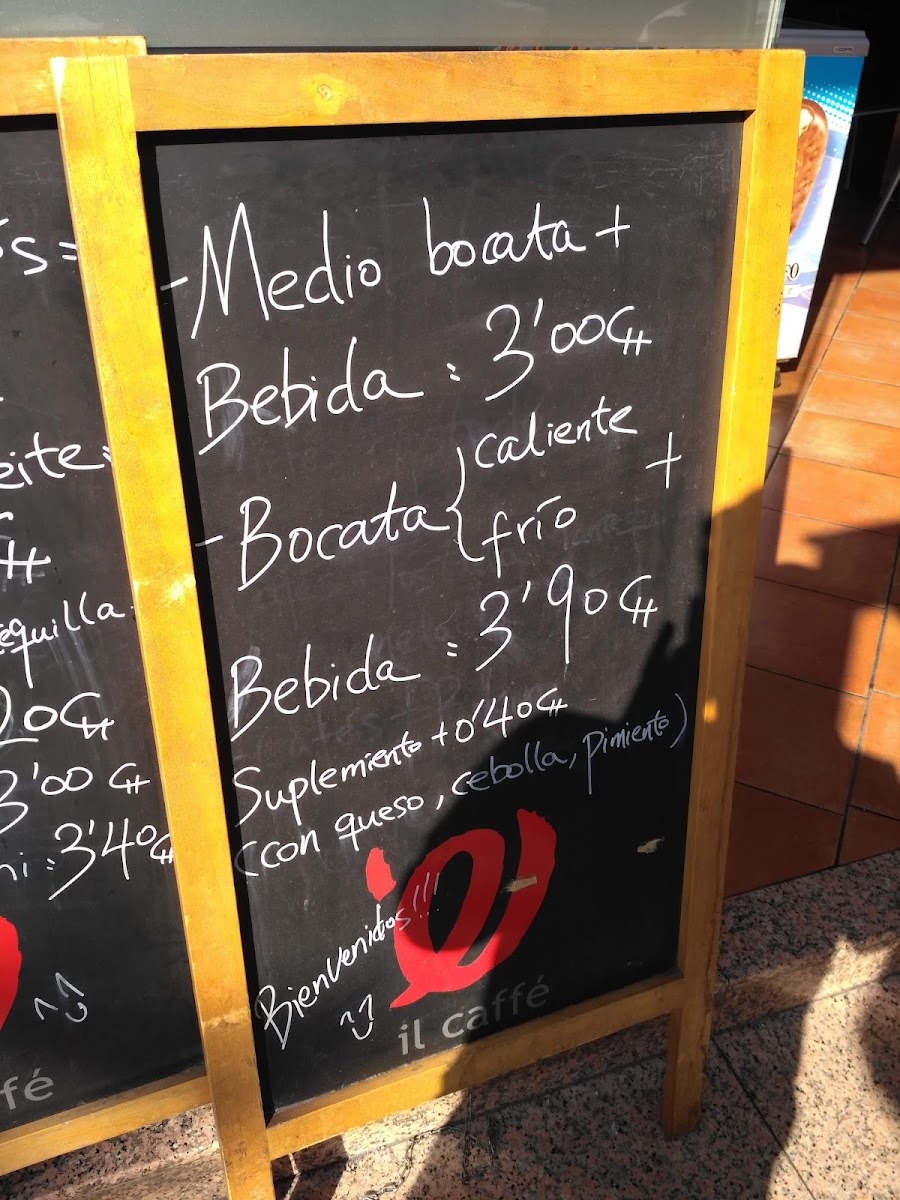 -Medio bocata +
Bebida : 3'00€
-Bocata { caliente
frío +
Bebida : 3'90€
Suplemiento + 0'40€
(con queso, cebolla, pimiento)
Bienvenidos!!!
il caffé
3'00€
3'40€